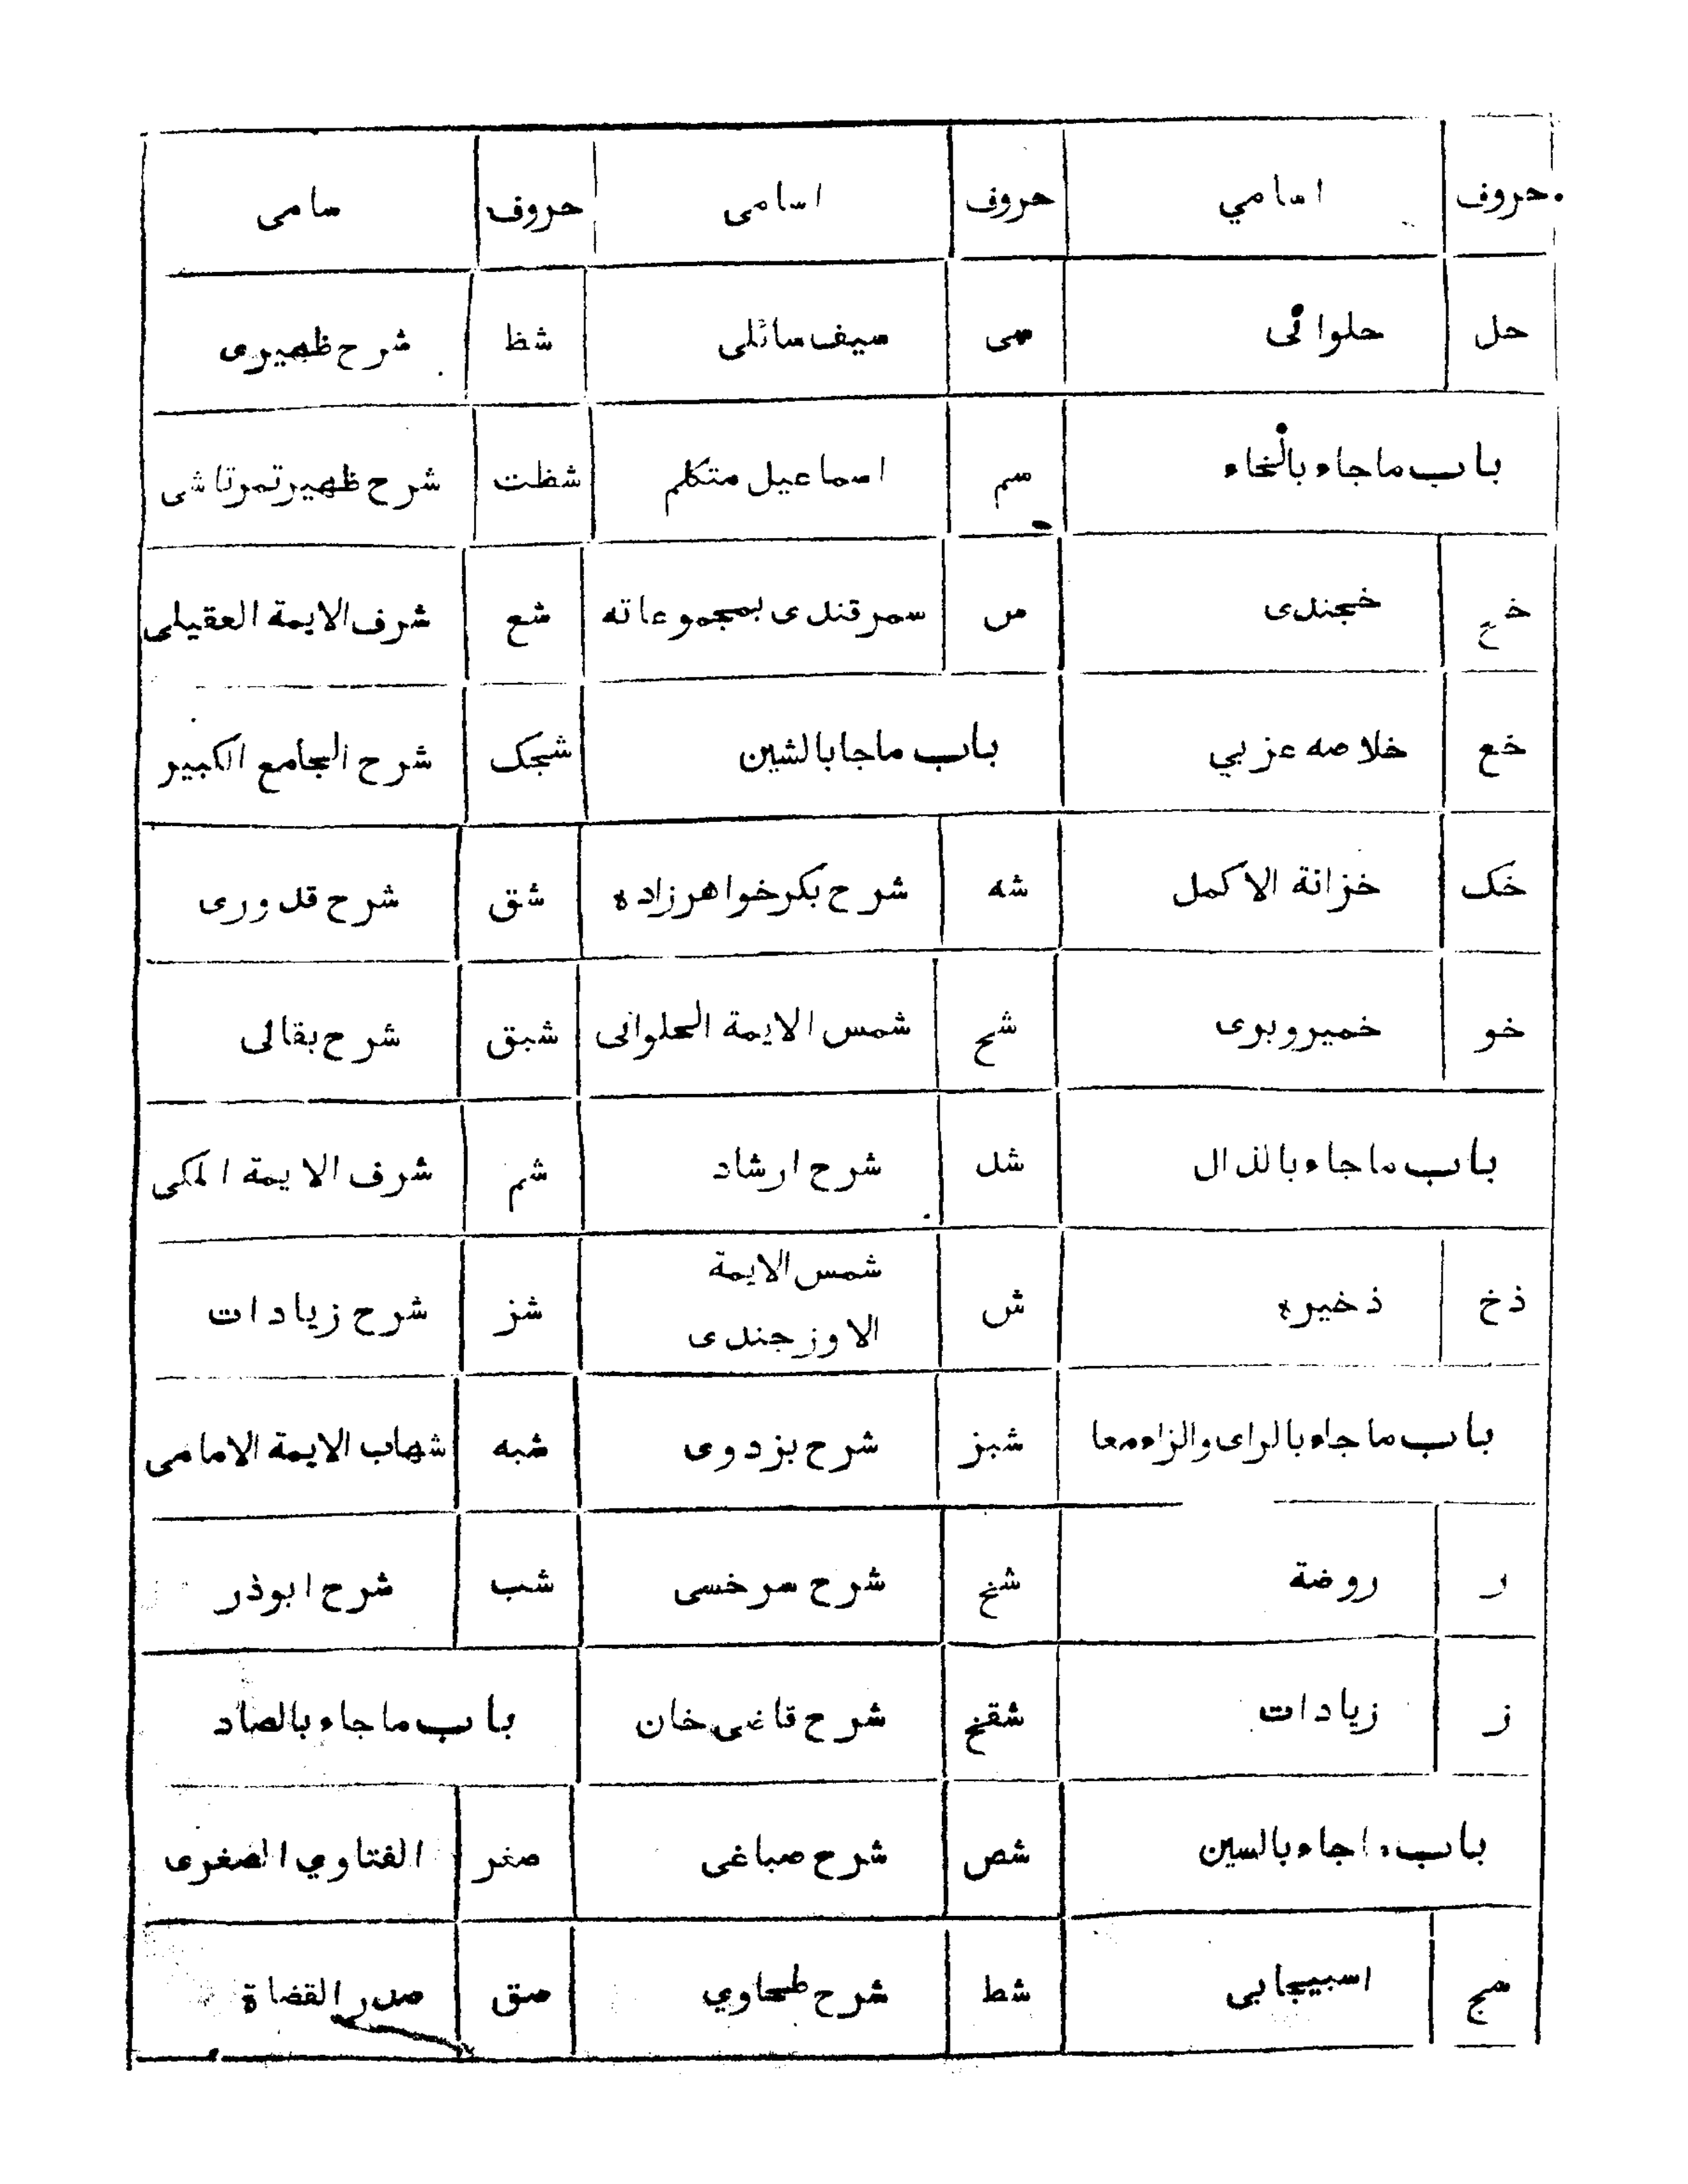 حروف اسامي حروف اسامی حروف سامی
حل حلوائی سی سیف سائلی شظ شرح ظهیری
باب ماجاء بالخاء سم اسماعیل متکلم شظت شرح ظهیر تمرتاشی
خج خجندی س سمرقندی بمجموعاته شع شرف الایمة العقیلی
خع خلاصه عزبي باب ماجا بالشین شجک شرح الجامع الکبیر
خک خزانة الاکمل شه شرح بکر خواهر زاده شق شرح قدوری
خو خمیر وبری شح شمس الایمة الحلوانی شبق شرح بقالی
باب ماجاء بالذال شد شرح ارشاد شم شرف الایمة المکی
ذخ ذخیره ش شمس الایمة
الاوزجندی شز شرح زیادات
باب ماجاء بالرای والزاء معا شبز شرح بزدوی شبه شهاب الایمة الامامی
ر روضة شخ شرح سرخسی شب شرح ابوذر
ز زیادات شقخ شرح قاضی خان باب ماجاء بالصاد
باب ماجاء بالسین شص شرح صباغی صغر الفتاوي الصغری
سج اسبیجابی شط شرح طحاوي صق صدر القضاة